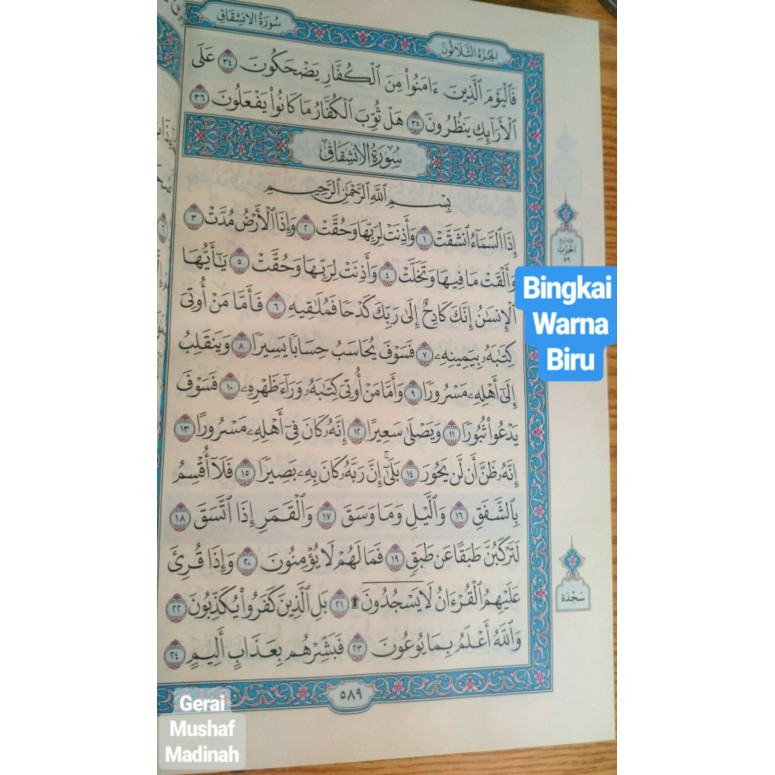 الجُزْءُ الثَّلَاثُونَ
سُورَةُ الانْشِقَاقِ
فَٱلْيَوْمَ ٱلَّذِينَ ءَامَنُوا۟ مِنَ ٱلْكُفَّارِ يَضْحَكُونَ ٣٤ عَلَى
ٱلْأَرَآئِكِ يَنظُرُونَ ٣٥ هَلْ ثُوِّبَ ٱلْكُفَّارُ مَا كَانُوا۟ يَفْعَلُونَ ٣٦
سُورَةُ الانْشِقَاقِ
بِسْمِ ٱللَّهِ ٱلرَّحْمَٰنِ ٱلرَّحِيمِ
إِذَا ٱلسَّمَآءُ ٱنشَقَّتْ ١ وَأَذِنَتْ لِرَبِّهَا وَحُقَّتْ ٢ وَإِذَا ٱلْأَرْضُ مُدَّتْ ٣
وَأَلْقَتْ مَا فِيهَا وَتَخَلَّتْ ٤ وَأَذِنَتْ لِرَبِّهَا وَحُقَّتْ ٥ يَٰٓأَيُّهَا
ٱلْإِنسَٰنُ إِنَّكَ كَادِحٌ إِلَىٰ رَبِّكَ كَدْحًا فَمُلَٰقِيهِ ٦ فَأَمَّا مَنْ أُوتِىَ
كِتَٰبَهُۥ بِيَمِينِهِۦ ٧ فَسَوْفَ يُحَاسَبُ حِسَابًا يَسِيرًا ٨ وَيَنقَلِبُ
إِلَىٰٓ أَهْلِهِۦ مَسْرُورًا ٩ وَأَمَّا مَنْ أُوتِىَ كِتَٰبَهُۥ وَرَآءَ ظَهْرِهِۦ ١٠ فَسَوْفَ
يَدْعُوا۟ ثُبُورًا ١١ وَيَصْلَىٰ سَعِيرًا ١٢ إِنَّهُۥ كَانَ فِىٓ أَهْلِهِۦ مَسْرُورًا ١٣
إِنَّهُۥ ظَنَّ أَن لَّن يَحُورَ ١٤ بَلَىٰٓ إِنَّ رَبَّهُۥ كَانَ بِهِۦ بَصِيرًا ١٥ فَلَآ أُقْسِمُ
بِٱلشَّفَقِ ١٦ وَٱلَّيْلِ وَمَا وَسَقَ ١٧ وَٱلْقَمَرِ إِذَا ٱتَّسَقَ ١٨
لَتَرْكَبُنَّ طَبَقًا عَن طَبَقٍ ١٩ فَمَا لَهُمْ لَا يُؤْمِنُونَ ٢٠ وَإِذَا قُرِئَ
عَلَيْهِمُ ٱلْقُرْءَانُ لَا يَسْجُدُونَ ۩ ٢١ بَلِ ٱلَّذِينَ كَفَرُوا۟ يُكَذِّبُونَ ٢٢
وَٱللَّهُ أَعْلَمُ بِمَا يُوعُونَ ٢٣ فَبَشِّرْهُم بِعَذَابٍ أَلِيمٍ ٢٤
٥٨٩
الحزب
٥٩
سَجْدَة
Bingkai
Warna
Biru
Gerai
Mushaf
Madinah